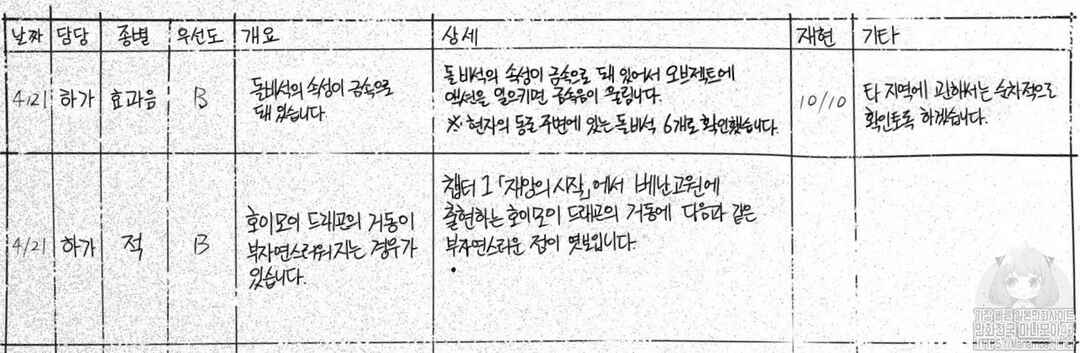 날짜 담당 종별 우선도 개요 상세 재현 기타
4/21 하가 효과음 B
돌비석의 속성이 금속으로
돼 있습니다.
돌비석의 속성이 금속으로 돼 있어서 오브젝트에
액션을 일으키면 금속음이 울립니다.
※ 현자의 동굴 주변에 있는 돌비석 6개로 확인했습니다.
10/10
타 지역에 관해서는 순차적으로
확인토록 하겠습니다.
4/21 하가 적 B
호이모이 드래곤의 거동이
부자연스러워지는 경우가
있습니다.
챕터 1 「재앙의 시작」에서 베난고원에
출현하는 호이모이 드래곤의 거동에 다음과 같은
부자연스러운 점이 엿보입니다.
•